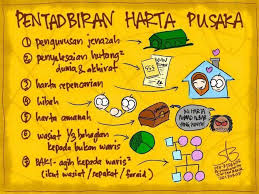 PENTADBIRAN HARTA PUSAKA
① pengurusan jenazah
② penyelesaian hutang²
dunia & akhirat
③ harta sepencarian
④ hibah
⑤ harta amanah
⑥ wasiat ⅓ bahagian
kepada bukan waris
⑦ BAKI - agih kepada waris²
(ikut wasiat / sepakat / faraid)
INI HARTA